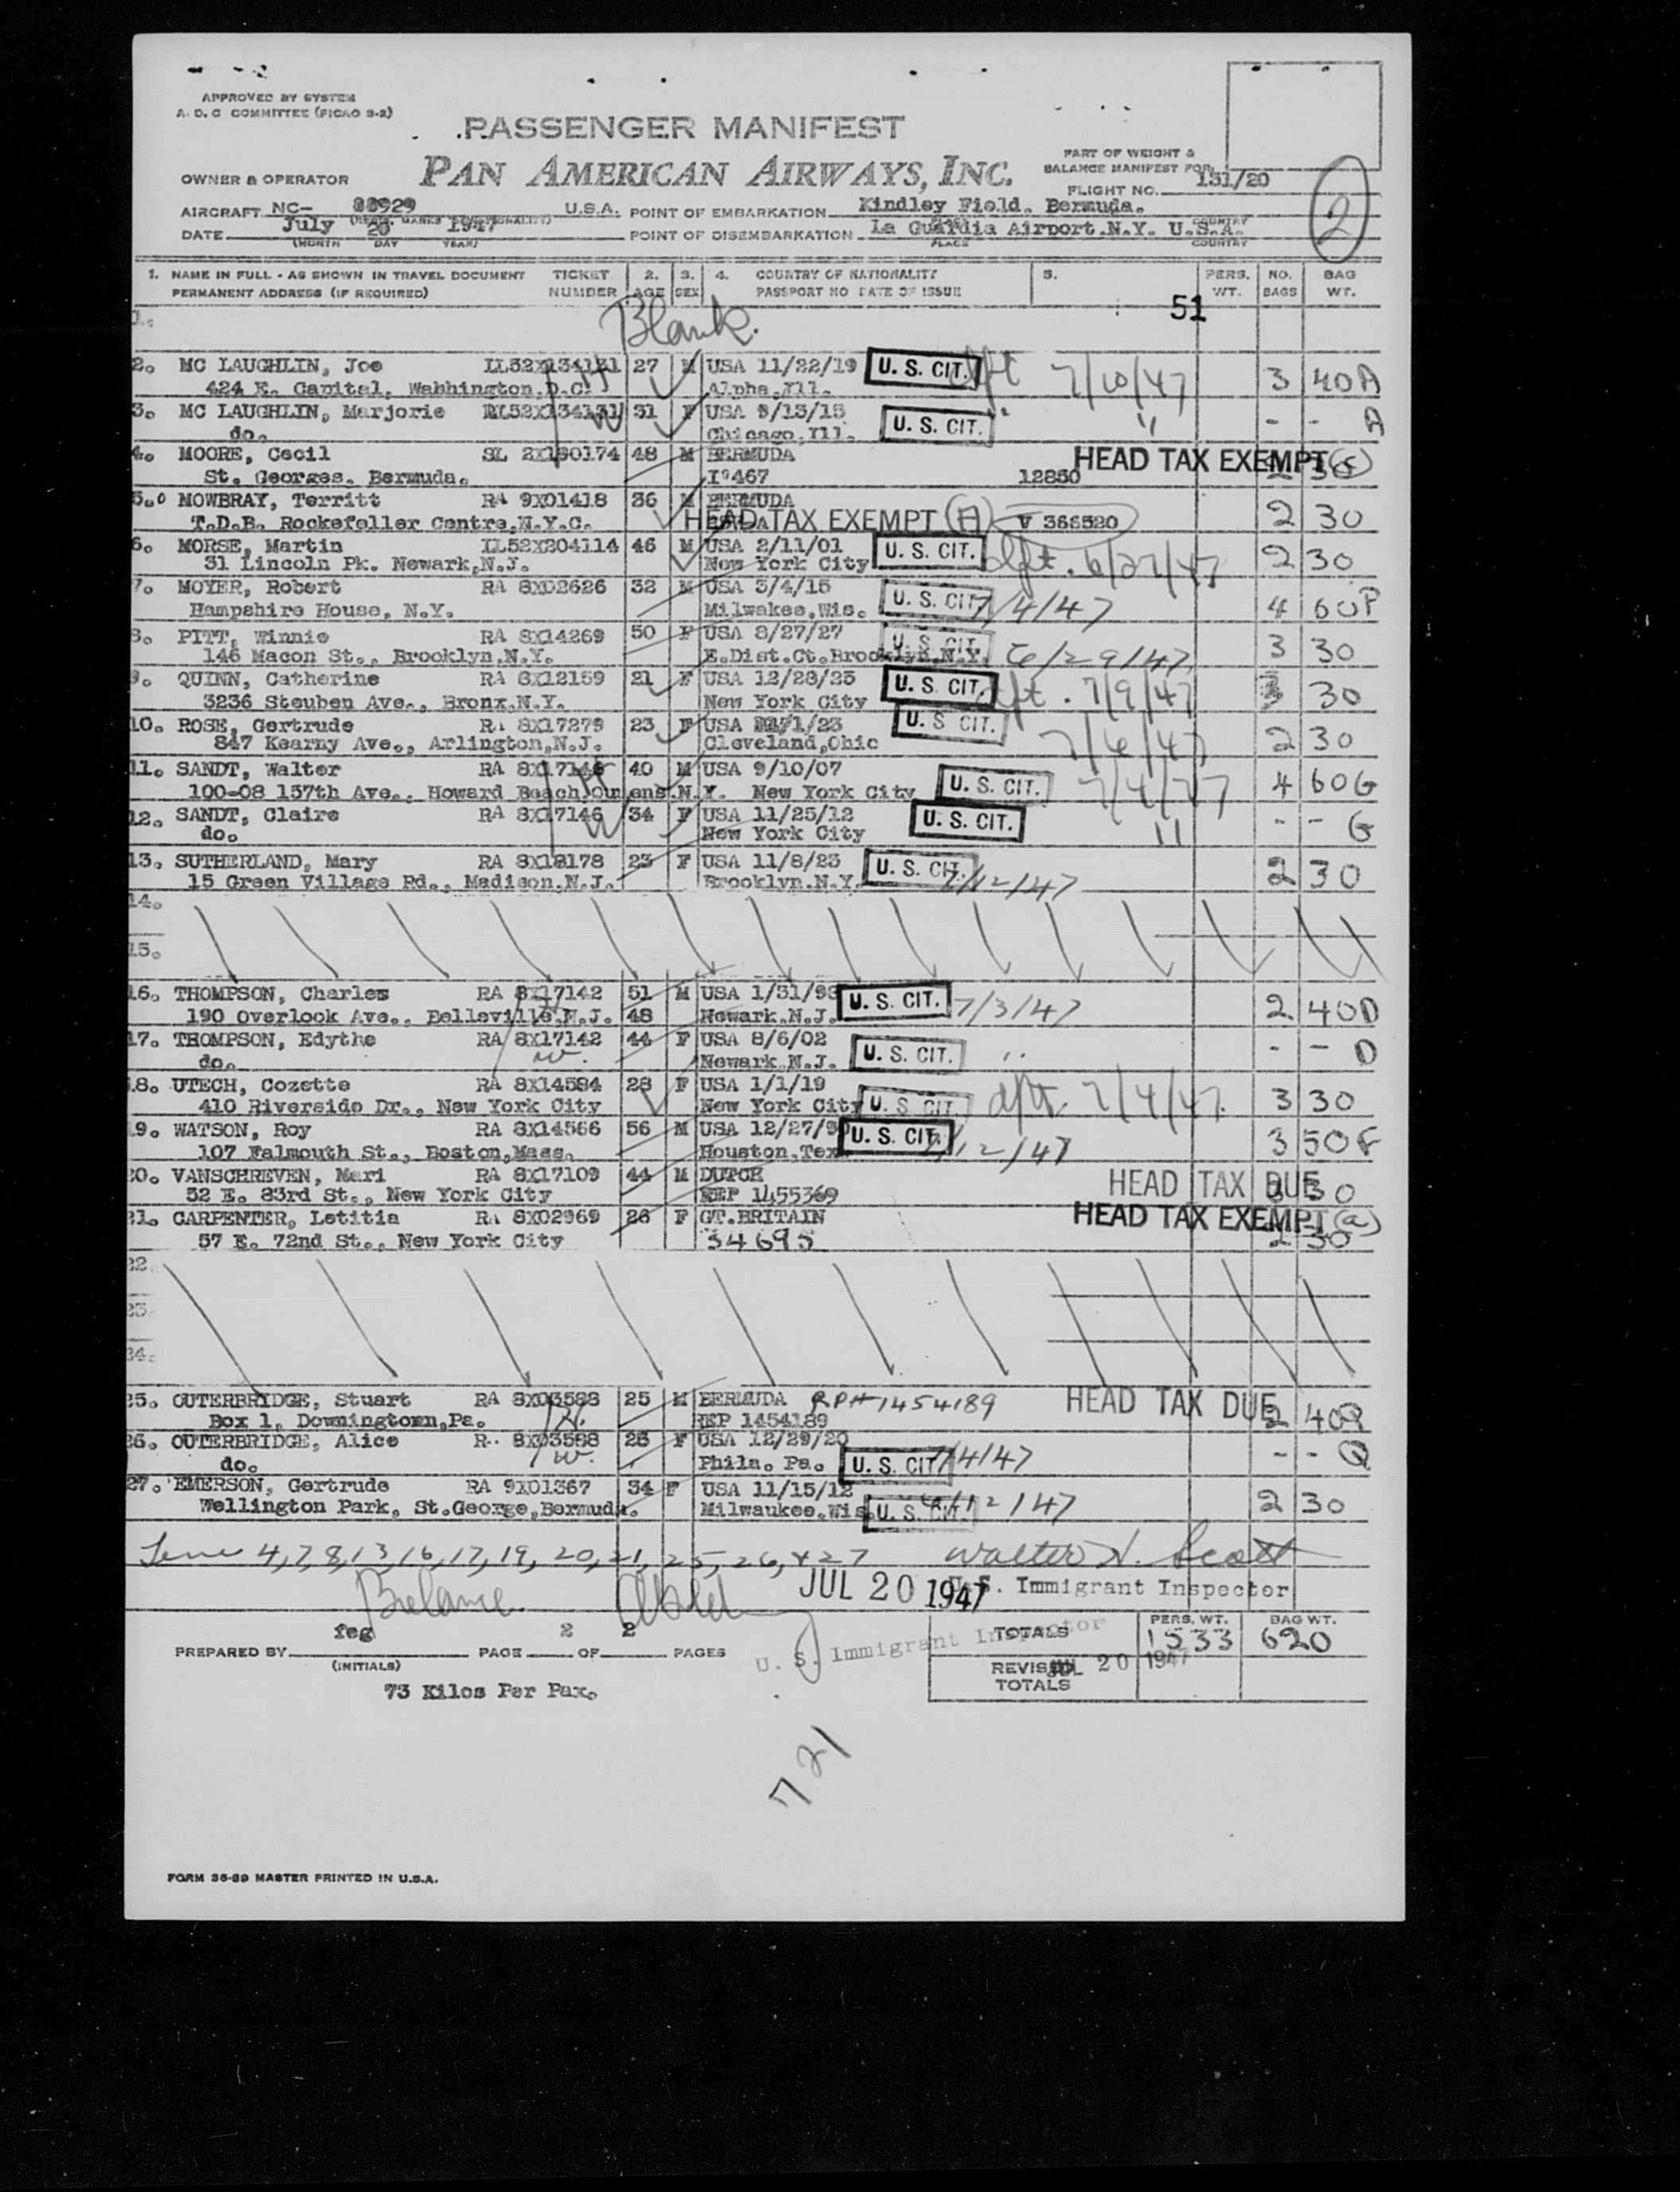 APPROVED BY SYSTEM
A. D. C COMMITTEE (PICAO 3-2)
PASSENGER MANIFEST
PAN AMERICAN AIRWAYS, INC.
OWNER & OPERATOR
PART OF WEIGHT &
BALANCE MANIFEST FOR
FLIGHT NO. 131/20
2
AIRCRAFT NC- 88929 U.S.A. POINT OF EMBARKATION Kindley Field. Bermuda.
DATE July 20 1947 POINT OF DISEMBARKATION La Guardia Airport.N.Y. U.S.A.
(MONTH DAY YEAR) PLACE COUNTRY
1. NAME IN FULL - AS SHOWN IN TRAVEL DOCUMENT TICKET 2. 3. 4. COUNTRY OF NATIONALITY 5. PERS. NO. BAG
PERMANENT ADDRESS (IF REQUIRED) NUMBER AGE SEX PASSPORT NO DATE OF ISSUE WT. BAGS WT.
51
1. Blank.
2. MC LAUGHLIN, Joe IL52X134131 27 M USA 11/22/19 U. S. CIT. dft 7/10/47 3 40A
424 E. Capital, Wahhington,D.C. Alpha,Ill.
3. MC LAUGHLIN, Marjorie IL52X134131 31 F USA 9/13/15 U. S. CIT. " " - - A
do. Chicago,Ill.
4. MOORE, Cecil SL 2X190174 48 M BERMUDA HEAD TAX EXEMPT (c) 2 30
St. Georges. Bermuda. I°467 12850
5. MOWBRAY, Territt RA 9X01418 36 M BERMUDA
T.D.B. Rockefeller Centre,N.Y.C. HEAD TAX EXEMPT (A) V 366520 2 30
6. MORSE, Martin IL52X204114 46 M USA 2/11/01 U. S. CIT. dft. 6/27/47 2 30
31 Lincoln Pk. Newark,N.J. New York City
7. MOYER, Robert RA 8X02626 32 M USA 3/4/15 U. S. CIT. 7/4/47 4 60P
Hampshire House, N.Y. Milwakee,Wis.
8. PITT, Winnie RA 8X14269 50 F USA 8/27/27 U. S. CIT. 6/29/47 3 30
146 Macon St., Brooklyn,N.Y. E.Dist.Ct.Brooklyn.N.Y.
9. QUINN, Catherine RA 8X12159 21 F USA 12/28/25 U. S. CIT. dft. 7/9/47 30
3236 Steuben Ave., Bronx,N.Y. New York City
10. ROSE, Gertrude RA 8X17279 23 F USA 1/23 U. S CIT. 7/6/47 2 30
847 Kearny Ave., Arlington,N.J. Cleveland,Ohio
11. SANDT, Walter RA 8X17146 40 M USA 9/10/07 U. S. CIT. 7/4/47 4 60G
100-08 157th Ave., Howard Beach,Queens,N.Y. New York City
12. SANDT, Claire RA 8X17146 34 F USA 11/25/12 U. S. CIT. " - - G
do. New York City
13. SUTHERLAND, Mary RA 8X18178 23 F USA 11/8/23 U. S. CIT. 7/12/47 2 30
15 Green Village Rd., Madison,N.J. Brooklyn.N.Y.
14.
15.
16. THOMPSON, Charles RA 8X17142 51 M USA 1/31/98 U. S. CIT. 7/3/47 2 40D
190 Overlook Ave., Belleville,N.J. 48 Newark.N.J.
17. THOMPSON, Edythe RA 8X17142 44 F USA 8/6/02 U. S. CIT. " - - D
do. w. Newark N.J.
18. UTECH, Cozette RA 8X14584 28 F USA 1/1/19
410 Riverside Dr., New York City New York City U. S. CIT dft. 7/4/47. 3 30
19. WATSON, Roy RA 8X14566 56 M USA 12/27/90 U. S. CIT. 7/12/47 3 50F
107 Falmouth St., Boston,Mass. Houston,Tex.
20. VANSCHREVEN, Mari RA 8X17109 44 M DUTCH HEAD TAX DUE 30
32 E. 83rd St., New York City REP 1455369
21. CARPENTER, Letitia RA 8X02969 26 F GT.BRITAIN HEAD TAX EXEMPT (a)
57 E. 72nd St., New York City 34695 2 30
22.
23.
24.
25. OUTERBRIDGE, Stuart RA 8X03588 25 M BERMUDA RP# 1454189 HEAD TAX DUE 2 40Q
Box 1, Downingtown,Pa. H. REP 1454189
26. OUTERBRIDGE, Alice RA 8X03588 26 F USA 12/29/20 7/4/47 - - Q
do. w. Phila. Pa. U. S. CIT
27. EMERSON, Gertrude RA 9X01367 34 F USA 11/15/12 6/12/47 2 30
Wellington Park, St.George,Bermuda. Milwaukee.Wis. U. S. CIT.
Line 4, 7, 8, 13, 16, 17, 19, 20, 21, 25, 26, + 27 Walter N. Scott
Balance JUL 20 1947 U.S. Immigrant Inspector
PREPARED BY feg PAGE 2 OF 2 PAGES
(INITIALS)
U. S. Immigrant Inspector
JUL 20 1947
PERS. WT. BAG WT.
TOTALS 1533 620
REVISED
TOTALS
73 Kilos Per Pax.
721
FORM 36-89 MASTER PRINTED IN U.S.A.